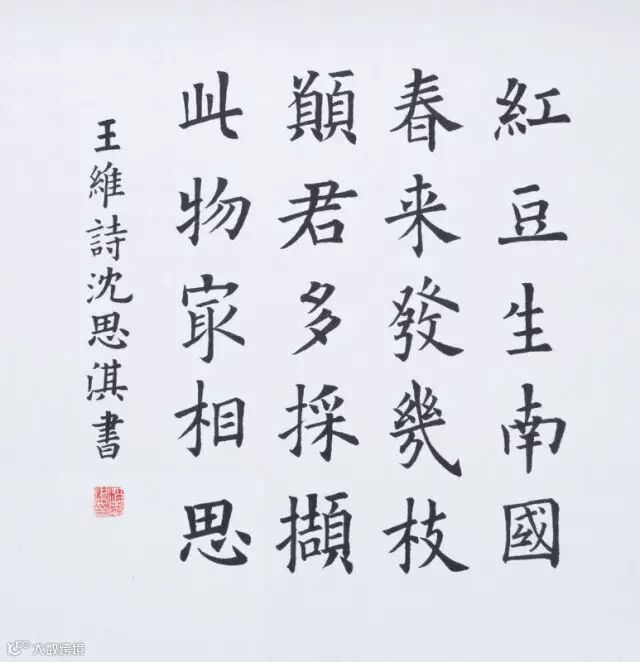 紅豆生南國
春来發幾枝
顚君多採擷
此物冣相思
王維詩沈思淇書
大数跨境